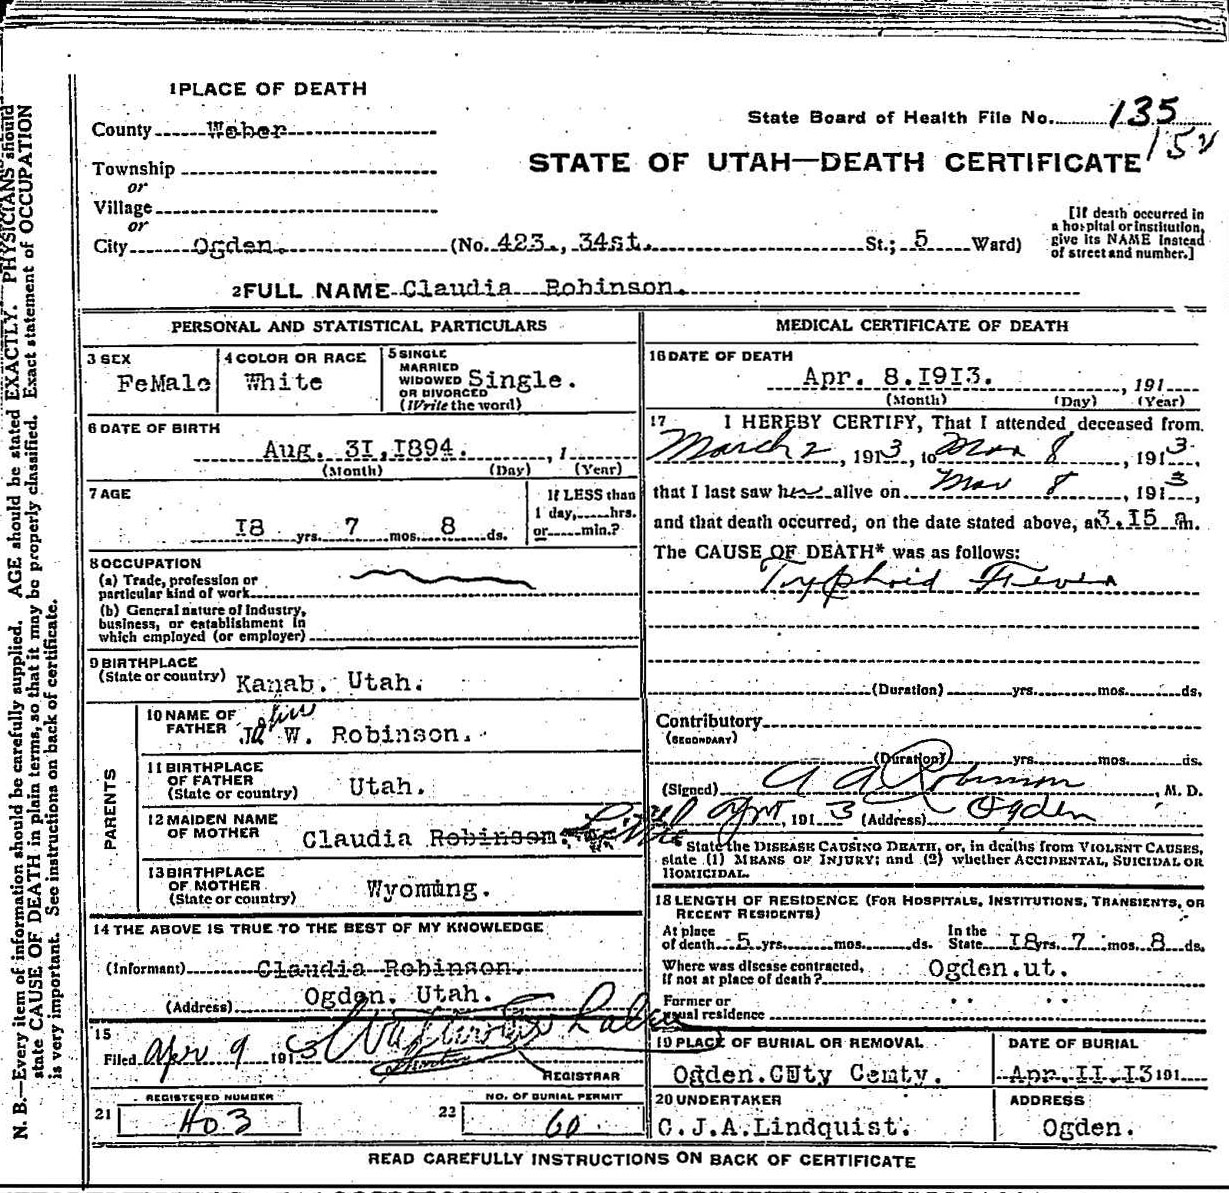 1 PLACE OF DEATH
County Weber
State Board of Health File No. 135
152
STATE OF UTAH—DEATH CERTIFICATE
Township
or
Village
or
City Ogden. (No. 423., 34st. St.; 5 Ward)
[If death occurred in
a hospital or institution,
give its NAME instead
of street and number.]
2 FULL NAME Claudia Robinson.
PERSONAL AND STATISTICAL PARTICULARS
3 SEX
FeMale
4 COLOR OR RACE
White
5 SINGLE
MARRIED
WIDOWED
OR DIVORCED
(Write the word)
Single.
6 DATE OF BIRTH
Aug. 3I,I894. , 1
(Month) (Day) (Year)
7 AGE
I8 yrs. 7 mos. 8 ds.
If LESS than
1 day, hrs.
or min.?
8 OCCUPATION
(a) Trade, profession or
particular kind of work
(b) General nature of Industry,
business, or establishment in
which employed (or employer)
9 BIRTHPLACE
(State or country) Kanab. Utah.
PARENTS
10 NAME OF
FATHER
John
W. Robinson.
11 BIRTHPLACE
OF FATHER
(State or country) Utah.
12 MAIDEN NAME
OF MOTHER
Claudia Robinson.
13 BIRTHPLACE
OF MOTHER
(State or country) Wyoming.
14 THE ABOVE IS TRUE TO THE BEST OF MY KNOWLEDGE
(Informant) Claudia Robinson.
(Address) Ogden. Utah.
15
Filed Apr 9 1913
REGISTRAR
21 REGISTERED NUMBER
403
22 NO. OF BURIAL PERMIT
60
MEDICAL CERTIFICATE OF DEATH
16 DATE OF DEATH
Apr. 8.I9I3. , 191
(Month) (Day) (Year)
17 I HEREBY CERTIFY, That I attended deceased from
March 2, 1913, to Mar 8, 1913,
that I last saw her alive on Mar 8, 1913,
and that death occurred, on the date stated above, at 3.15 a m.
The CAUSE OF DEATH* was as follows:
Typhoid Fever
(Duration) yrs. mos. ds.
Contributory
(SECONDARY)
(Duration) yrs. mos. ds.
(Signed) A A Robinson, M. D.
, 1913 (Address) Ogden
State the DISEASE CAUSING DEATH, or, in deaths from VIOLENT CAUSES,
state (1) MEANS OF INJURY; and (2) whether ACCIDENTAL, SUICIDAL OR
HOMICIDAL.
18 LENGTH OF RESIDENCE (FOR HOSPITALS, INSTITUTIONS, TRANSIENTS, OR
RECENT RESIDENTS)
At place
of death 5 yrs. mos. ds.
In the
State I8 yrs. 7 mos. 8 ds.
Where was disease contracted,
If not at place of death? Ogden.ut.
Former or
usual residence
19 PLACE OF BURIAL OR REMOVAL
Ogden.CUty Cemty.
DATE OF BURIAL
Apr.II.I3 191
20 UNDERTAKER
C.J.A.Lindquist.
ADDRESS
Ogden.
READ CAREFULLY INSTRUCTIONS ON BACK OF CERTIFICATE
N. B.—Every item of information should be carefully supplied. AGE should be stated EXACTLY. PHYSICIANS should
state CAUSE OF DEATH in plain terms, so that it may be properly classified. Exact statement of OCCUPATION
is very important. See instructions on back of certificate.